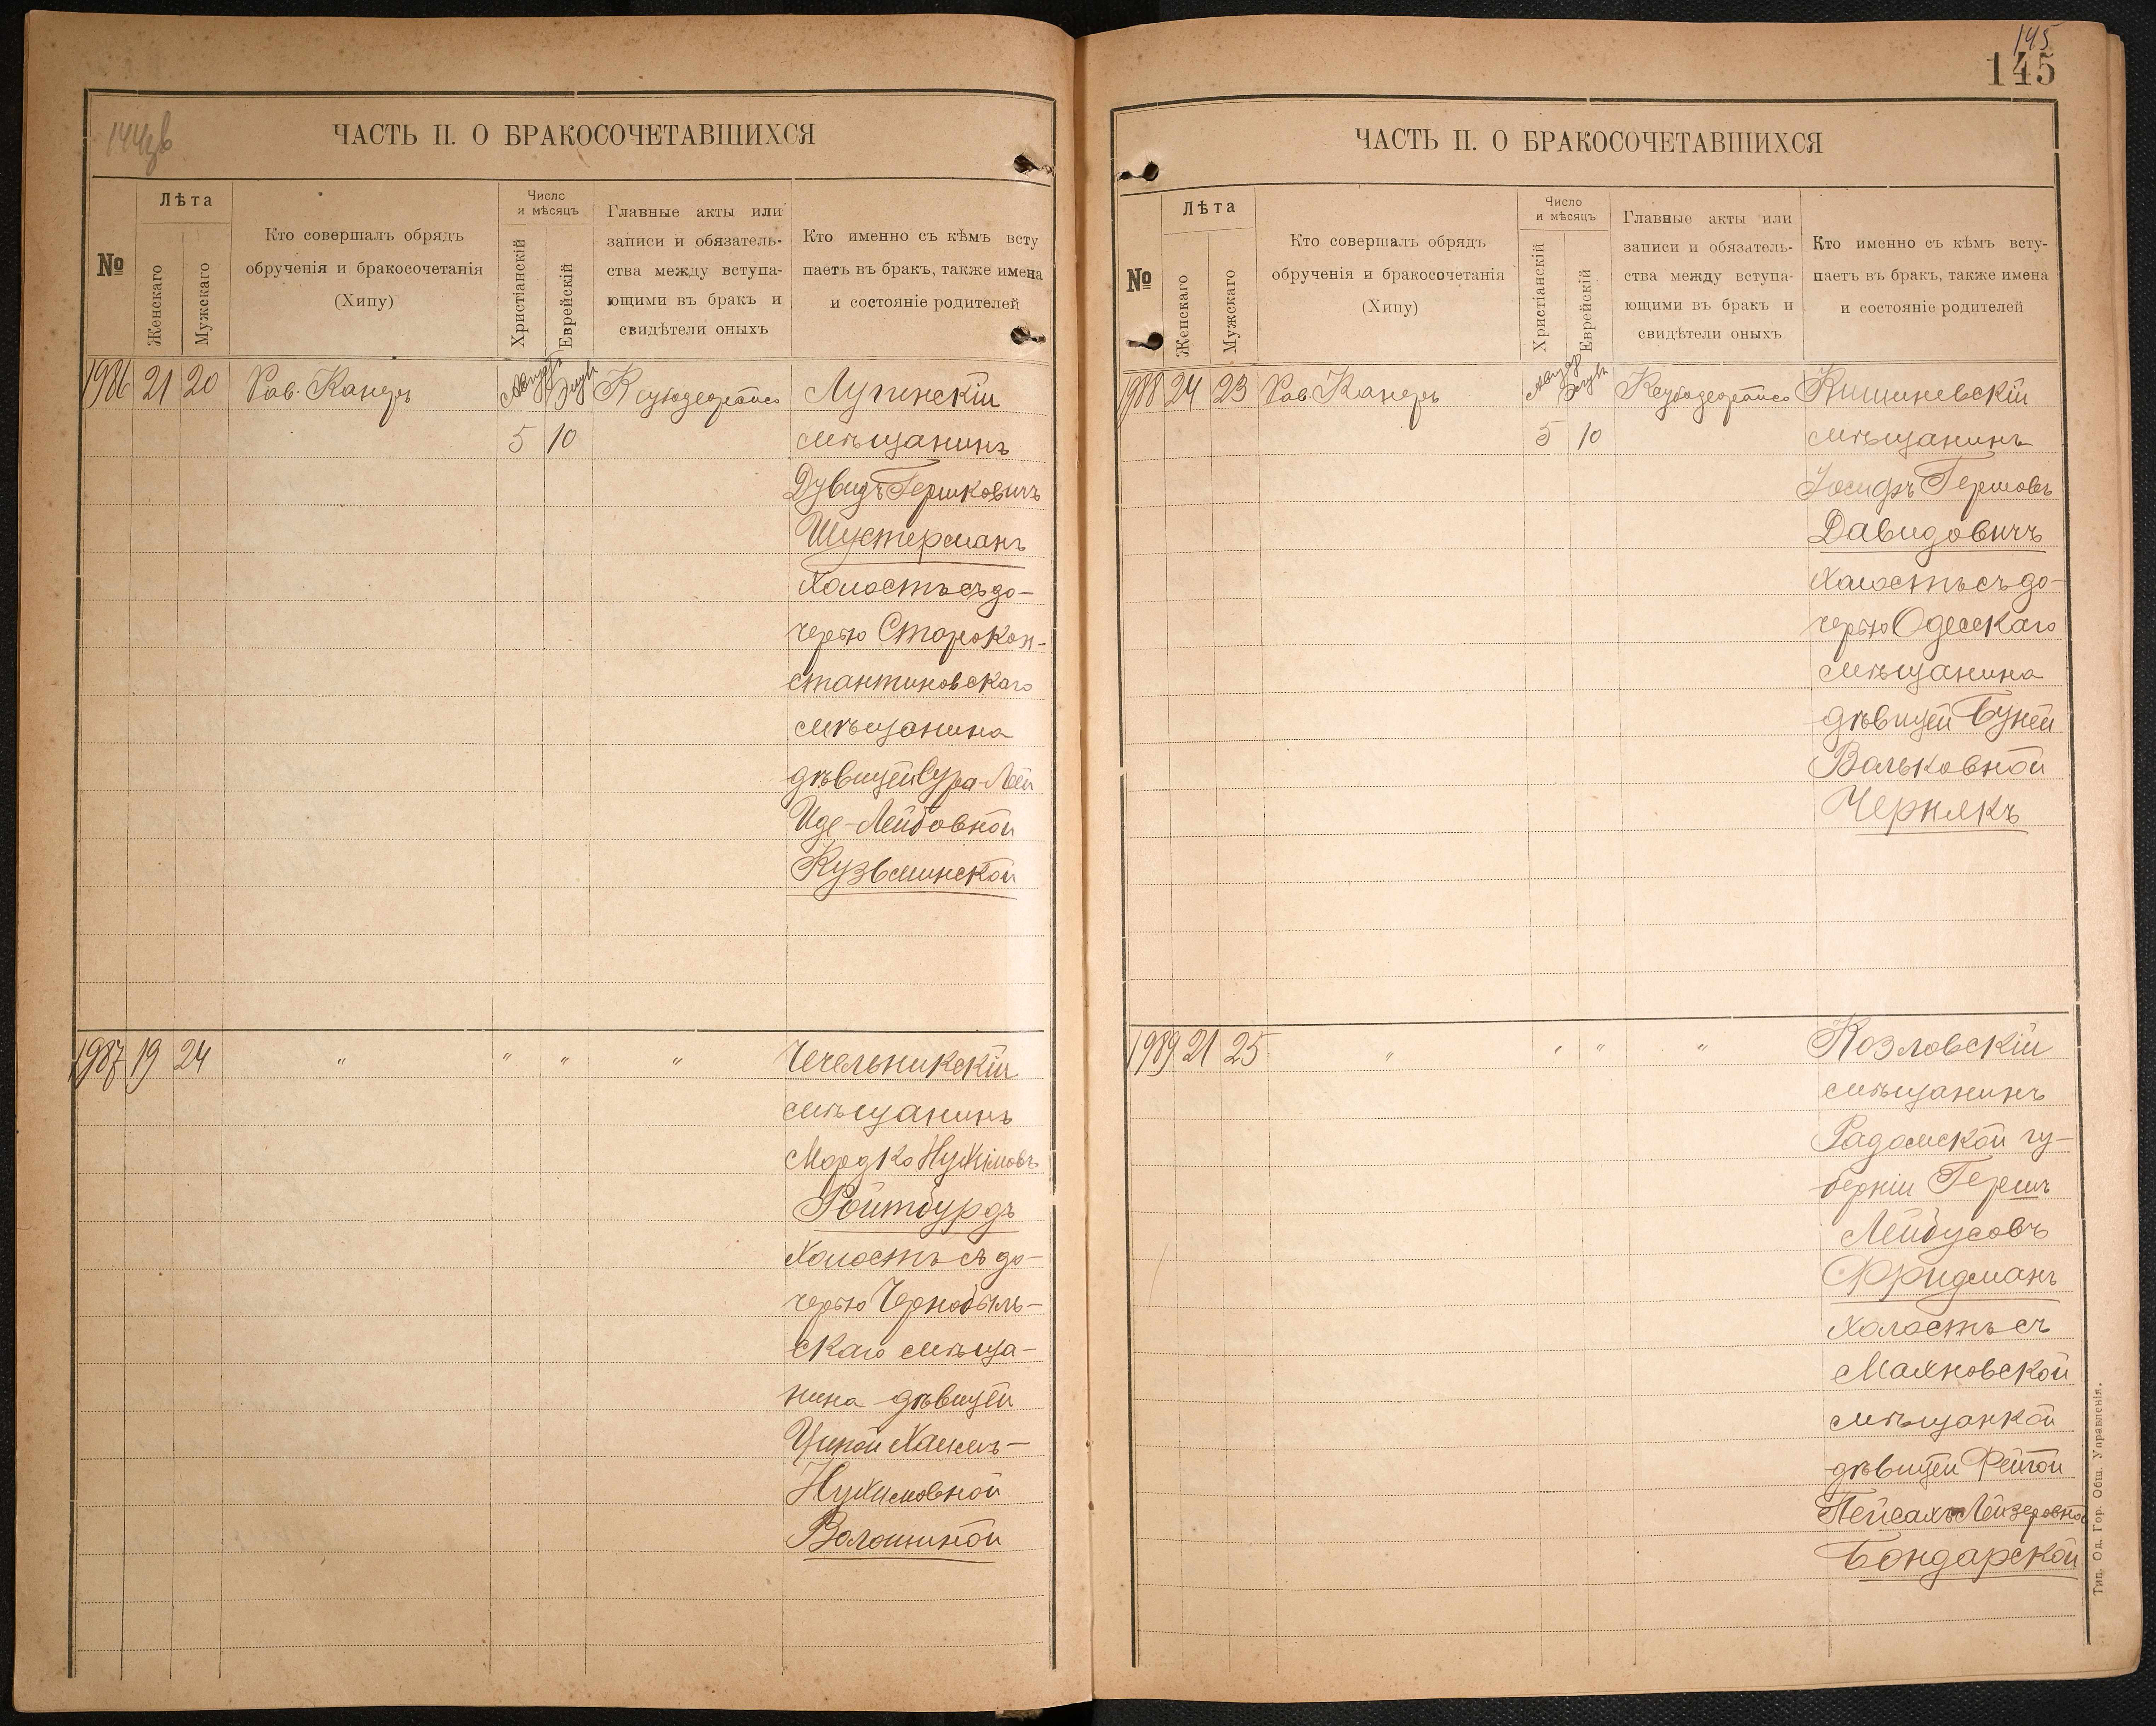 144об
ЧАСТЬ II. О БРАКОСОЧЕТАВШИХСЯ
№
Лѣта
Женскаго
Мужскаго
Кто совершалъ обрядъ
обрученія и бракосочетанія
(Хипу)
Число
и мѣсяцъ
Христіанскій
Еврейскій
Главные акты или
записи и обязатель-
ства между вступа-
ющими въ бракъ и
свидѣтели оныхъ
Кто именно съ кѣмъ всту
паетъ въ бракъ, также имена
и состояніе родителей
1986 21 20 Рав. Канеръ
Августъ
5 10
Лугинскій
мѣщанинъ
Дувидъ Гершковичъ
Шустерманъ
холостъ съ до-
черью Старокон-
стантиновскаго
мѣщанина
дѣвицей Сура-Лей
Иде-Лейбовной
Кузьминской
1987 19 24 " " " " Чечельникскій
мѣщанинъ
Мордко Нухимовъ
Ройтбурдъ
холостъ съ до-
черью Чернобыль-
скаго мѣща-
нина дѣвицей
Ципой Хаимъ-
Нухимовной
Волошиной
145
145
ЧАСТЬ II. О БРАКОСОЧЕТАВШИХСЯ
№
Лѣта
Женскаго
Мужскаго
Кто совершалъ обрядъ
обрученія и бракосочетанія
(Хипу)
Число
и мѣсяцъ
Христіанскій
Еврейскій
Главные акты или
записи и обязатель-
ства между вступа-
ющими въ бракъ и
свидѣтели оныхъ
Кто именно съ кѣмъ всту-
паетъ въ бракъ, также имена
и состояніе родителей
1988 24 23 Рав. Канеръ
5 10
Кишиневскій
мѣщанинъ
Іосифъ Гершовъ
Давидовичъ
холостъ съ до-
черью Одесскаго
мѣщанина
дѣвицей Буней
Вольковной
Чернякъ
1989 21 25 " " " " Козловскій
мѣщанинъ
Радомской гу-
берніи Гершъ
Лейбусовъ
Фридманъ
холостъ съ
Махновской
мѣщанкой
дѣвицей Фейгой
Пейсахъ-Лейзеровной
Бондарской
Тип. Од. Гор. Общ. Управленія.